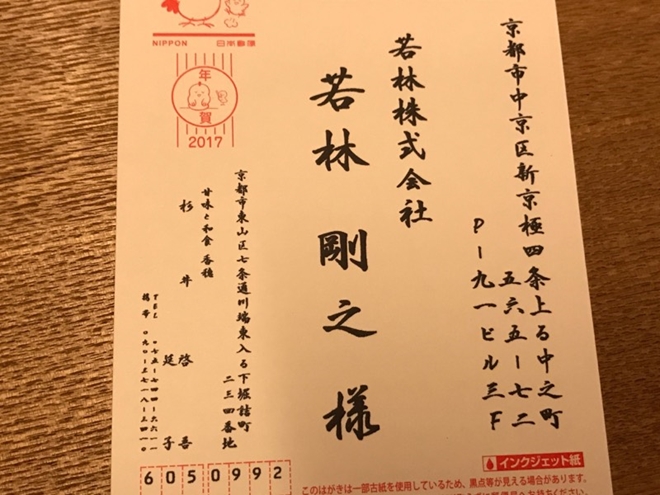 NIPPON 日本郵便
年賀
2017
京都市中京区新京極四条上る中之町
五六五ー七二
Pー九一ビル三F
若林株式会社
若林 剛之 様
京都市東山区七条通川端東入る下堀詰町
二三四番地
甘味と和食 香穂
杉井 啓吾
延子
6050992
インクジェット紙
このはがきは一部古紙を使用しているため、黒点等が見える場合があります。